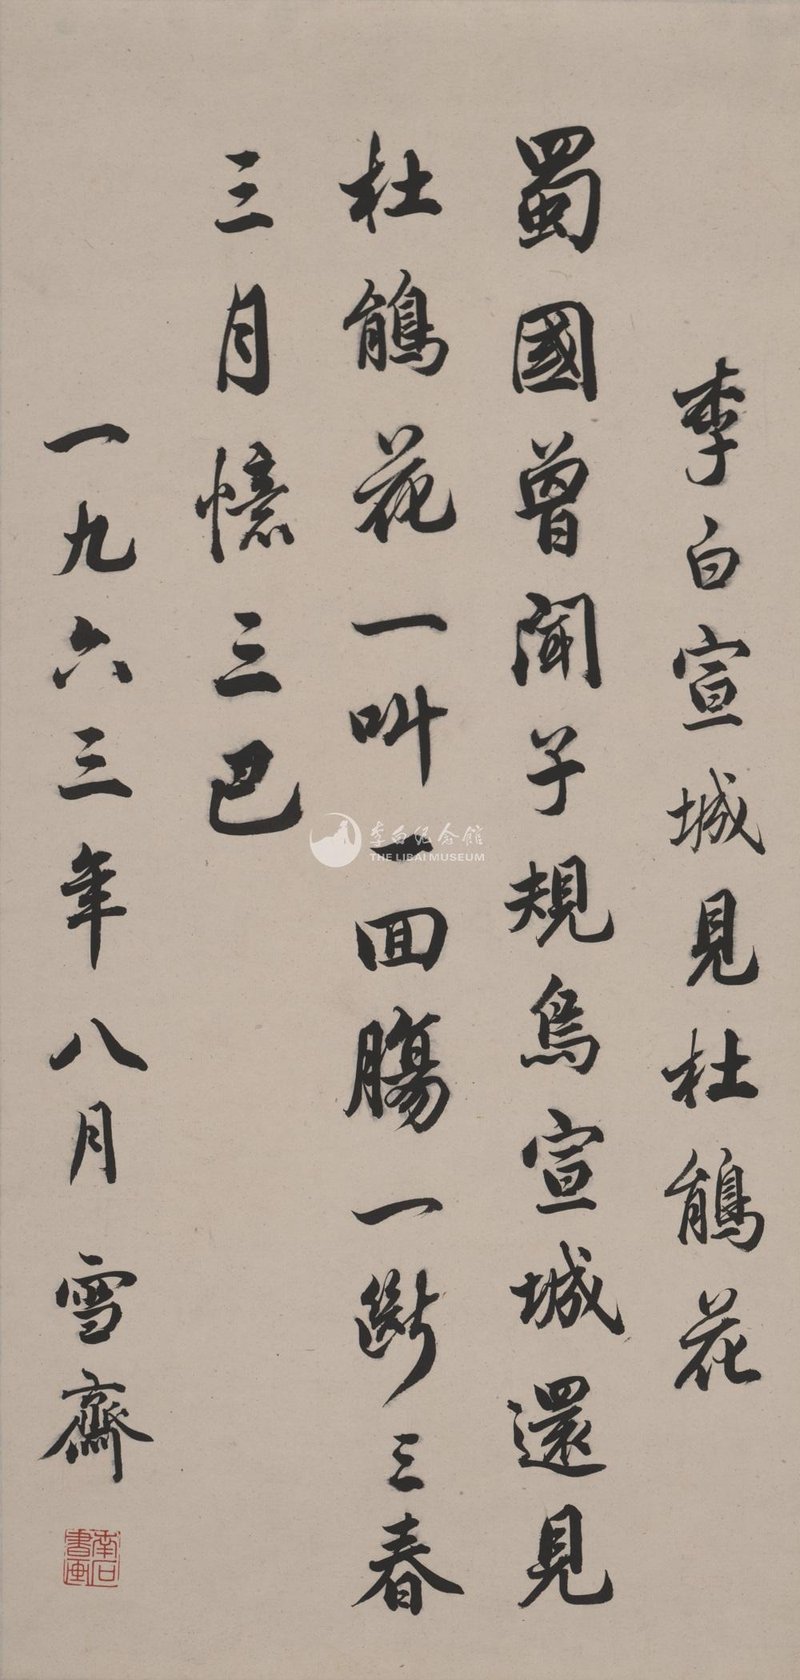 李白宣城見杜鵑花
蜀國曾聞子規鳥宣城還見
杜鵑花一叫一回腸一斷三春
三月憶三巴
一九六三年八月雪齋
李白纪念館
THE LIBAI MUSEUM